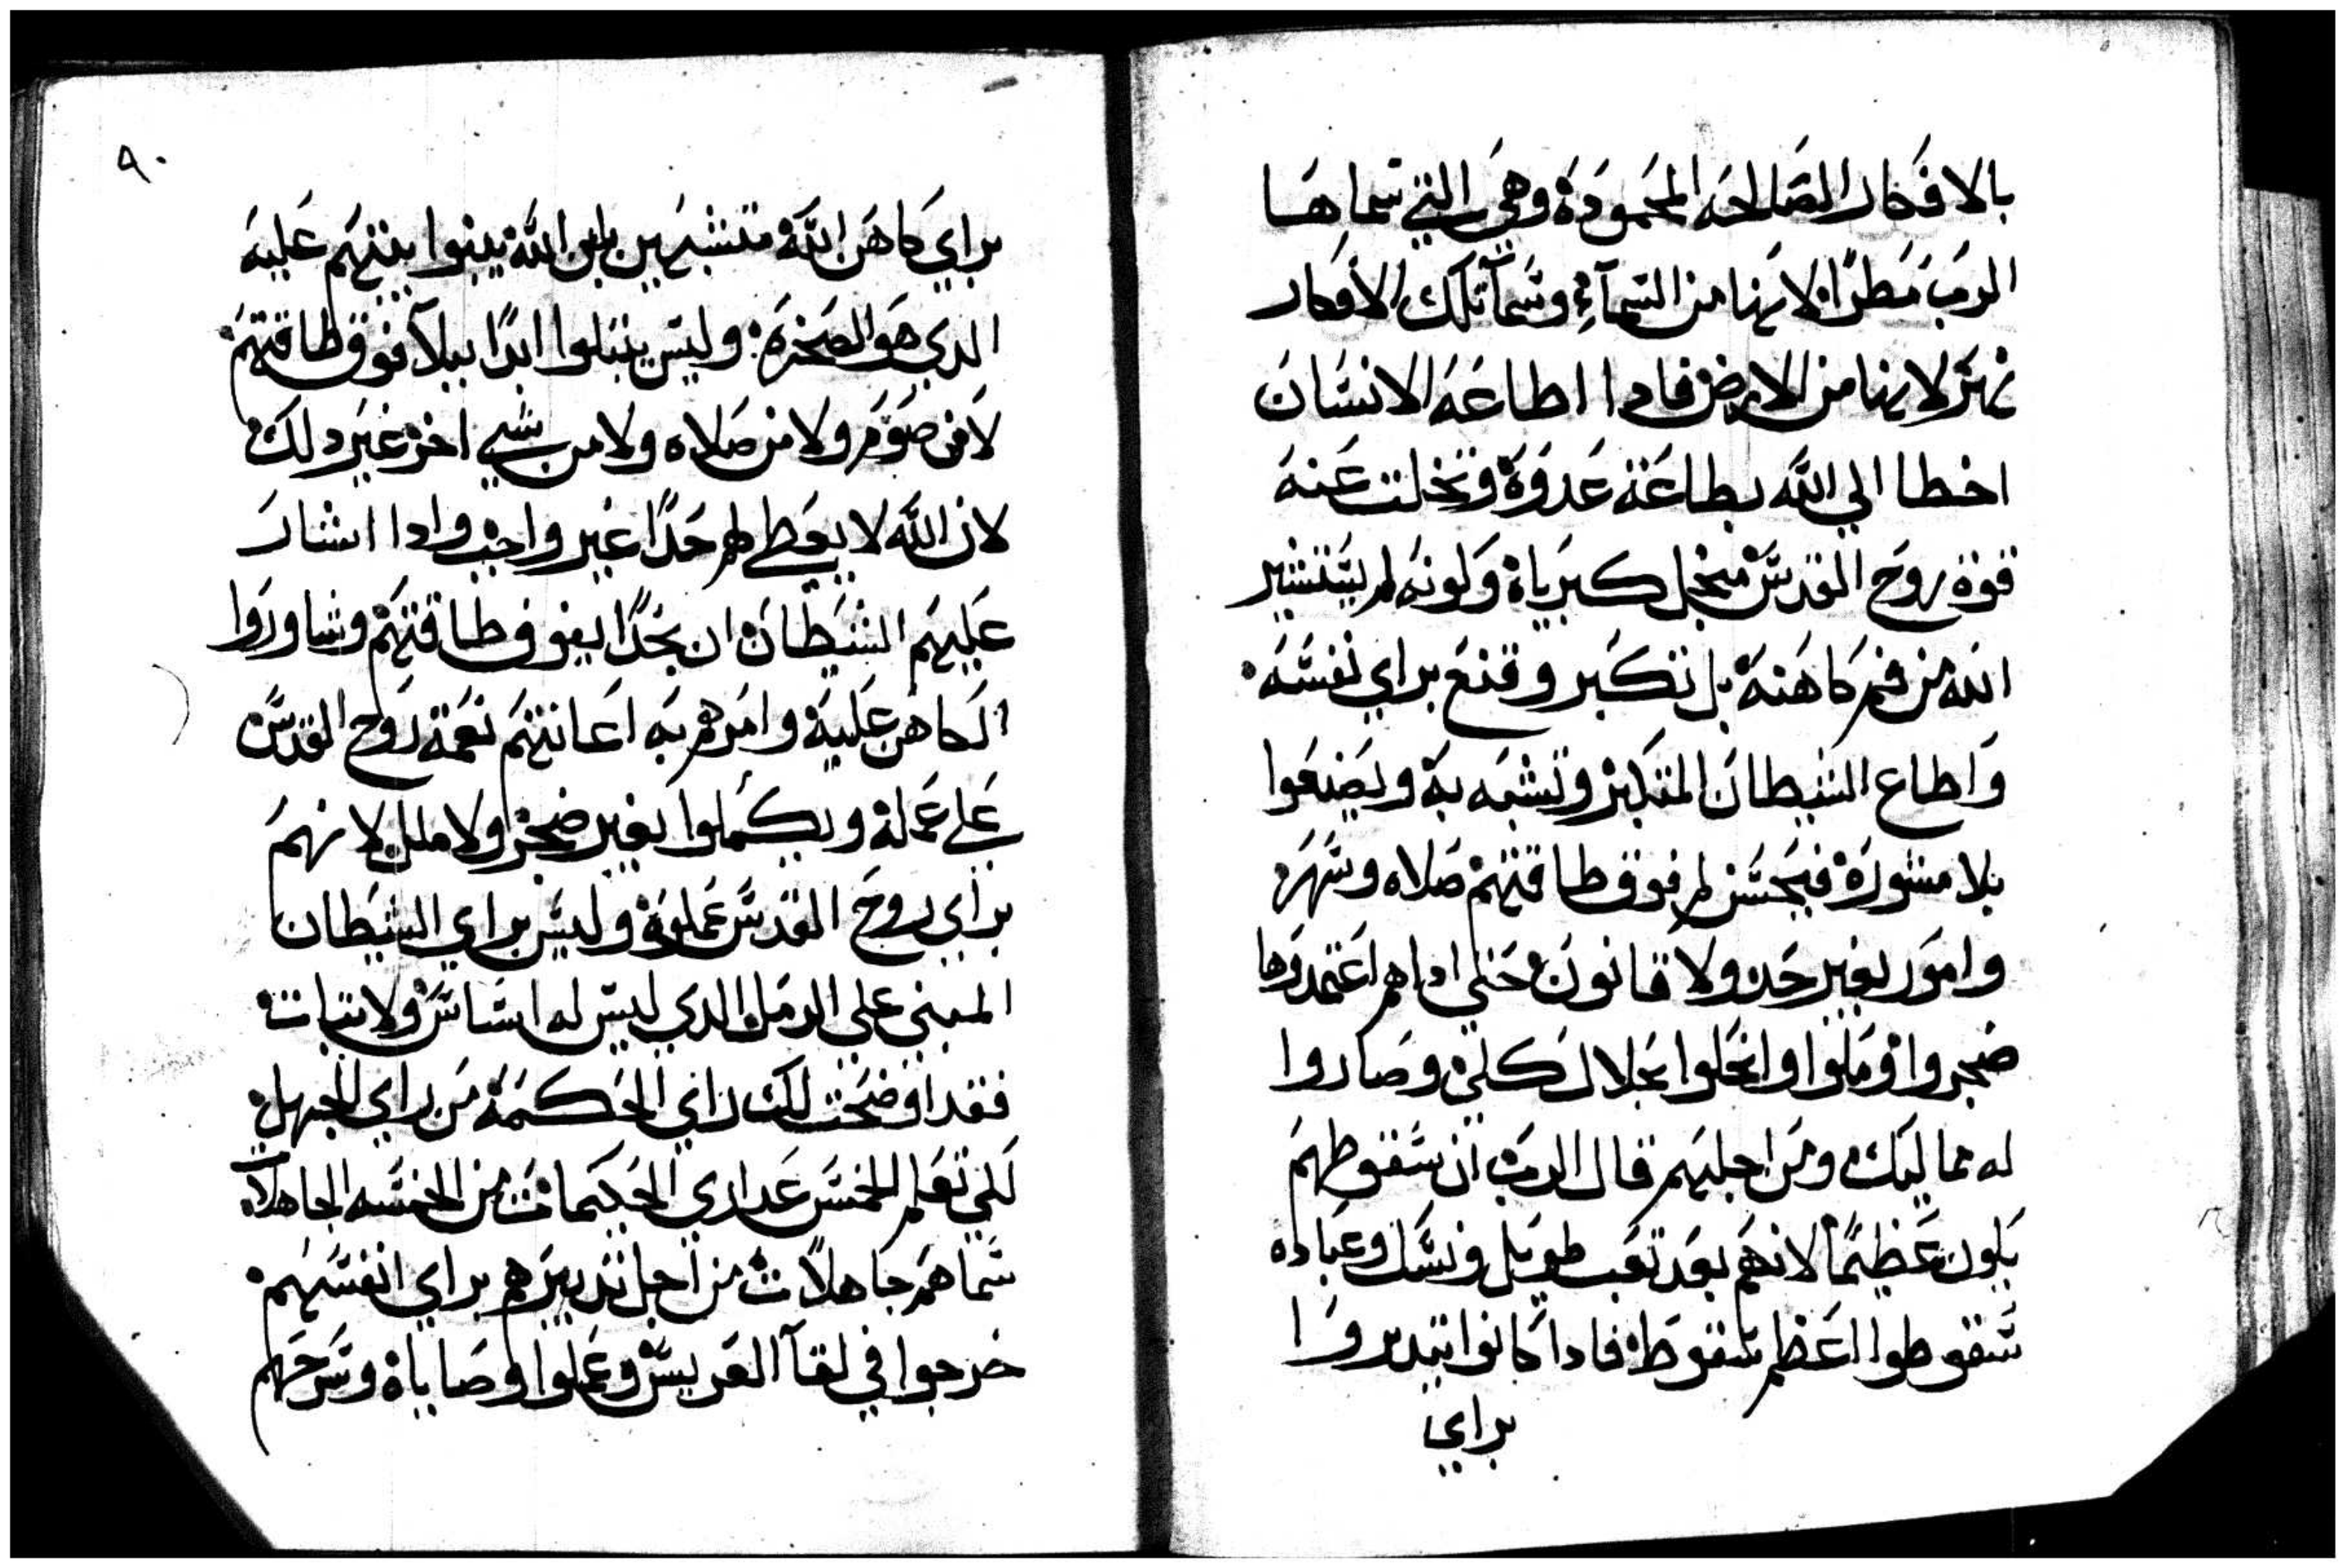 بالافكار الصالحه المحموده وهي التي سماها
الرب مطرا لانها من السمآء وسما تلك الافكار
نهر لانها من الارض فادا اطاعه الانسان
اخطا الي الله بطاعة عدوه وتخلت عنه
قوة روح القدس منجل كبرياه ولونه لم يستشير
الله من فم كاهنه بل تكبر وقنع براي نفسه
واطاع الشيطان المتكبر وتشبه به ويصنعوا
بلا مشوره فيحسن لهم فوق طاقتهم صلاه وسهر
وامور بغير حد ولا قانون حتي اداهم اعتمدوها
ضجروا وملوا وانحلوا نحلال كلي وصاروا
له مماليك ومن اجلهم قال الرب ان سقوطهم
يلون عظيما لانهم بعد تعب طويل ونسك وعباده
سقوطوا اعظم سقوط فادا كانوا يتدبروا
براي
٩٠
براي كاهن الله متشبهين بابن الله يبنوا بيتهم عليه
الدي هو الصخره وليس يبتلوا ابدا ببلآ فوق طاقتهم
لا من صوم ولا من صلاه ولا من شي اخر غير دلك
لان الله لا يعطيهم حدا غير واجب وادا اشار
عليهم الشيطان ان بحدا يفوق طاقتهم وشاوروا
الكاهن عليه وامرهم به اعانتهم نعمة روح القدس
علي عمله ويكملوا بغير ضجر ولا ملل لانهم
براي روح القدس عملوه وليس براي الشيطان
المبني علي الرمل الدي ليس له اساس ولا تبات
فقد اوضحت لك راي الحكمه من راي الجهل
لكي تعلم الخمس عداري الحكيمات من الخمسه الجاهلات
سماهم جاهلات من اجل تدبيرهم براي انفسهم
خرجوا في لقآ العريس وعملوا وصاياه وسرحهم